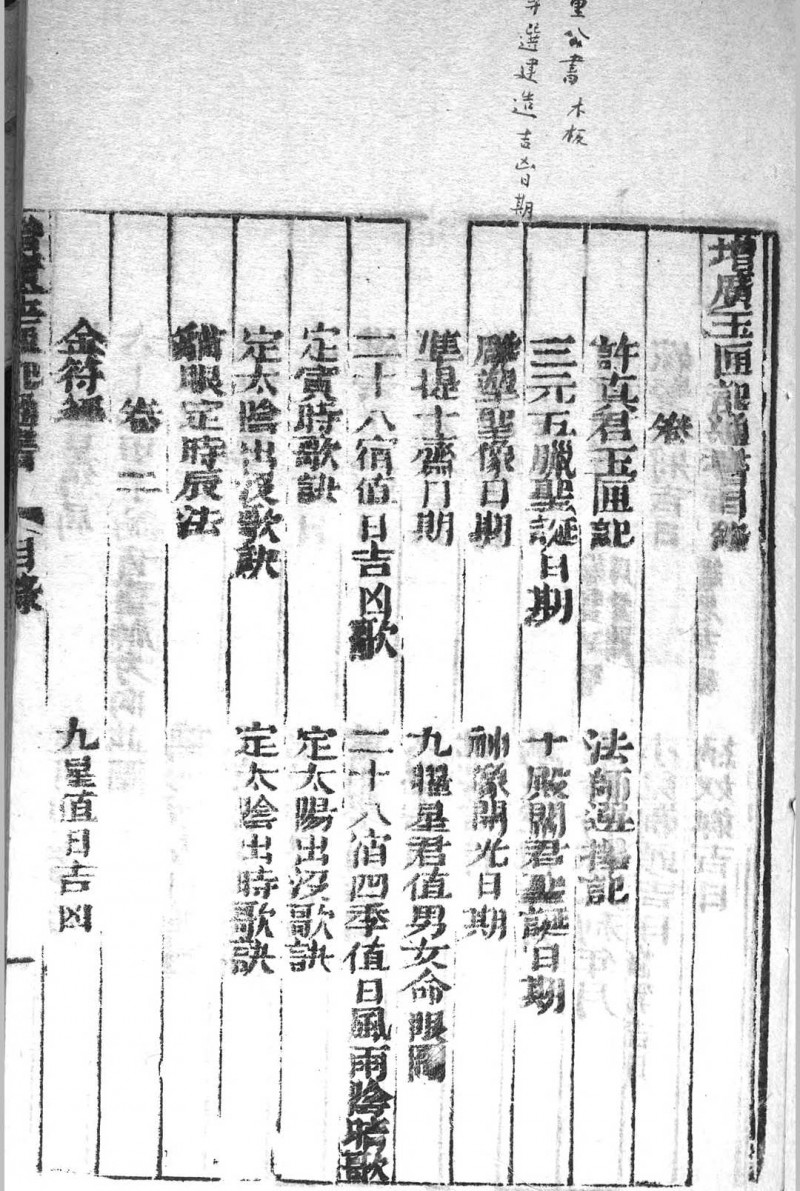 公書木板
選建造吉凶日期
增廣玉匣記通書目錄
卷
許真君玉匣記
法師選擇記
三元五臘聖誕日期
十殿閻君聖誕日期
雕塑聖像日期
神像開光日期
準提十齋日期
九曜星君值男女命限圖
二十八宿值日吉凶歌
二十八宿四季值日風雨陰晴歌
定寅時歌訣
定太陽出沒歌訣
定太陰出沒歌訣
定太陰出時歌訣
貓眼定時辰法
卷二
金符經
九星值日吉凶
目錄